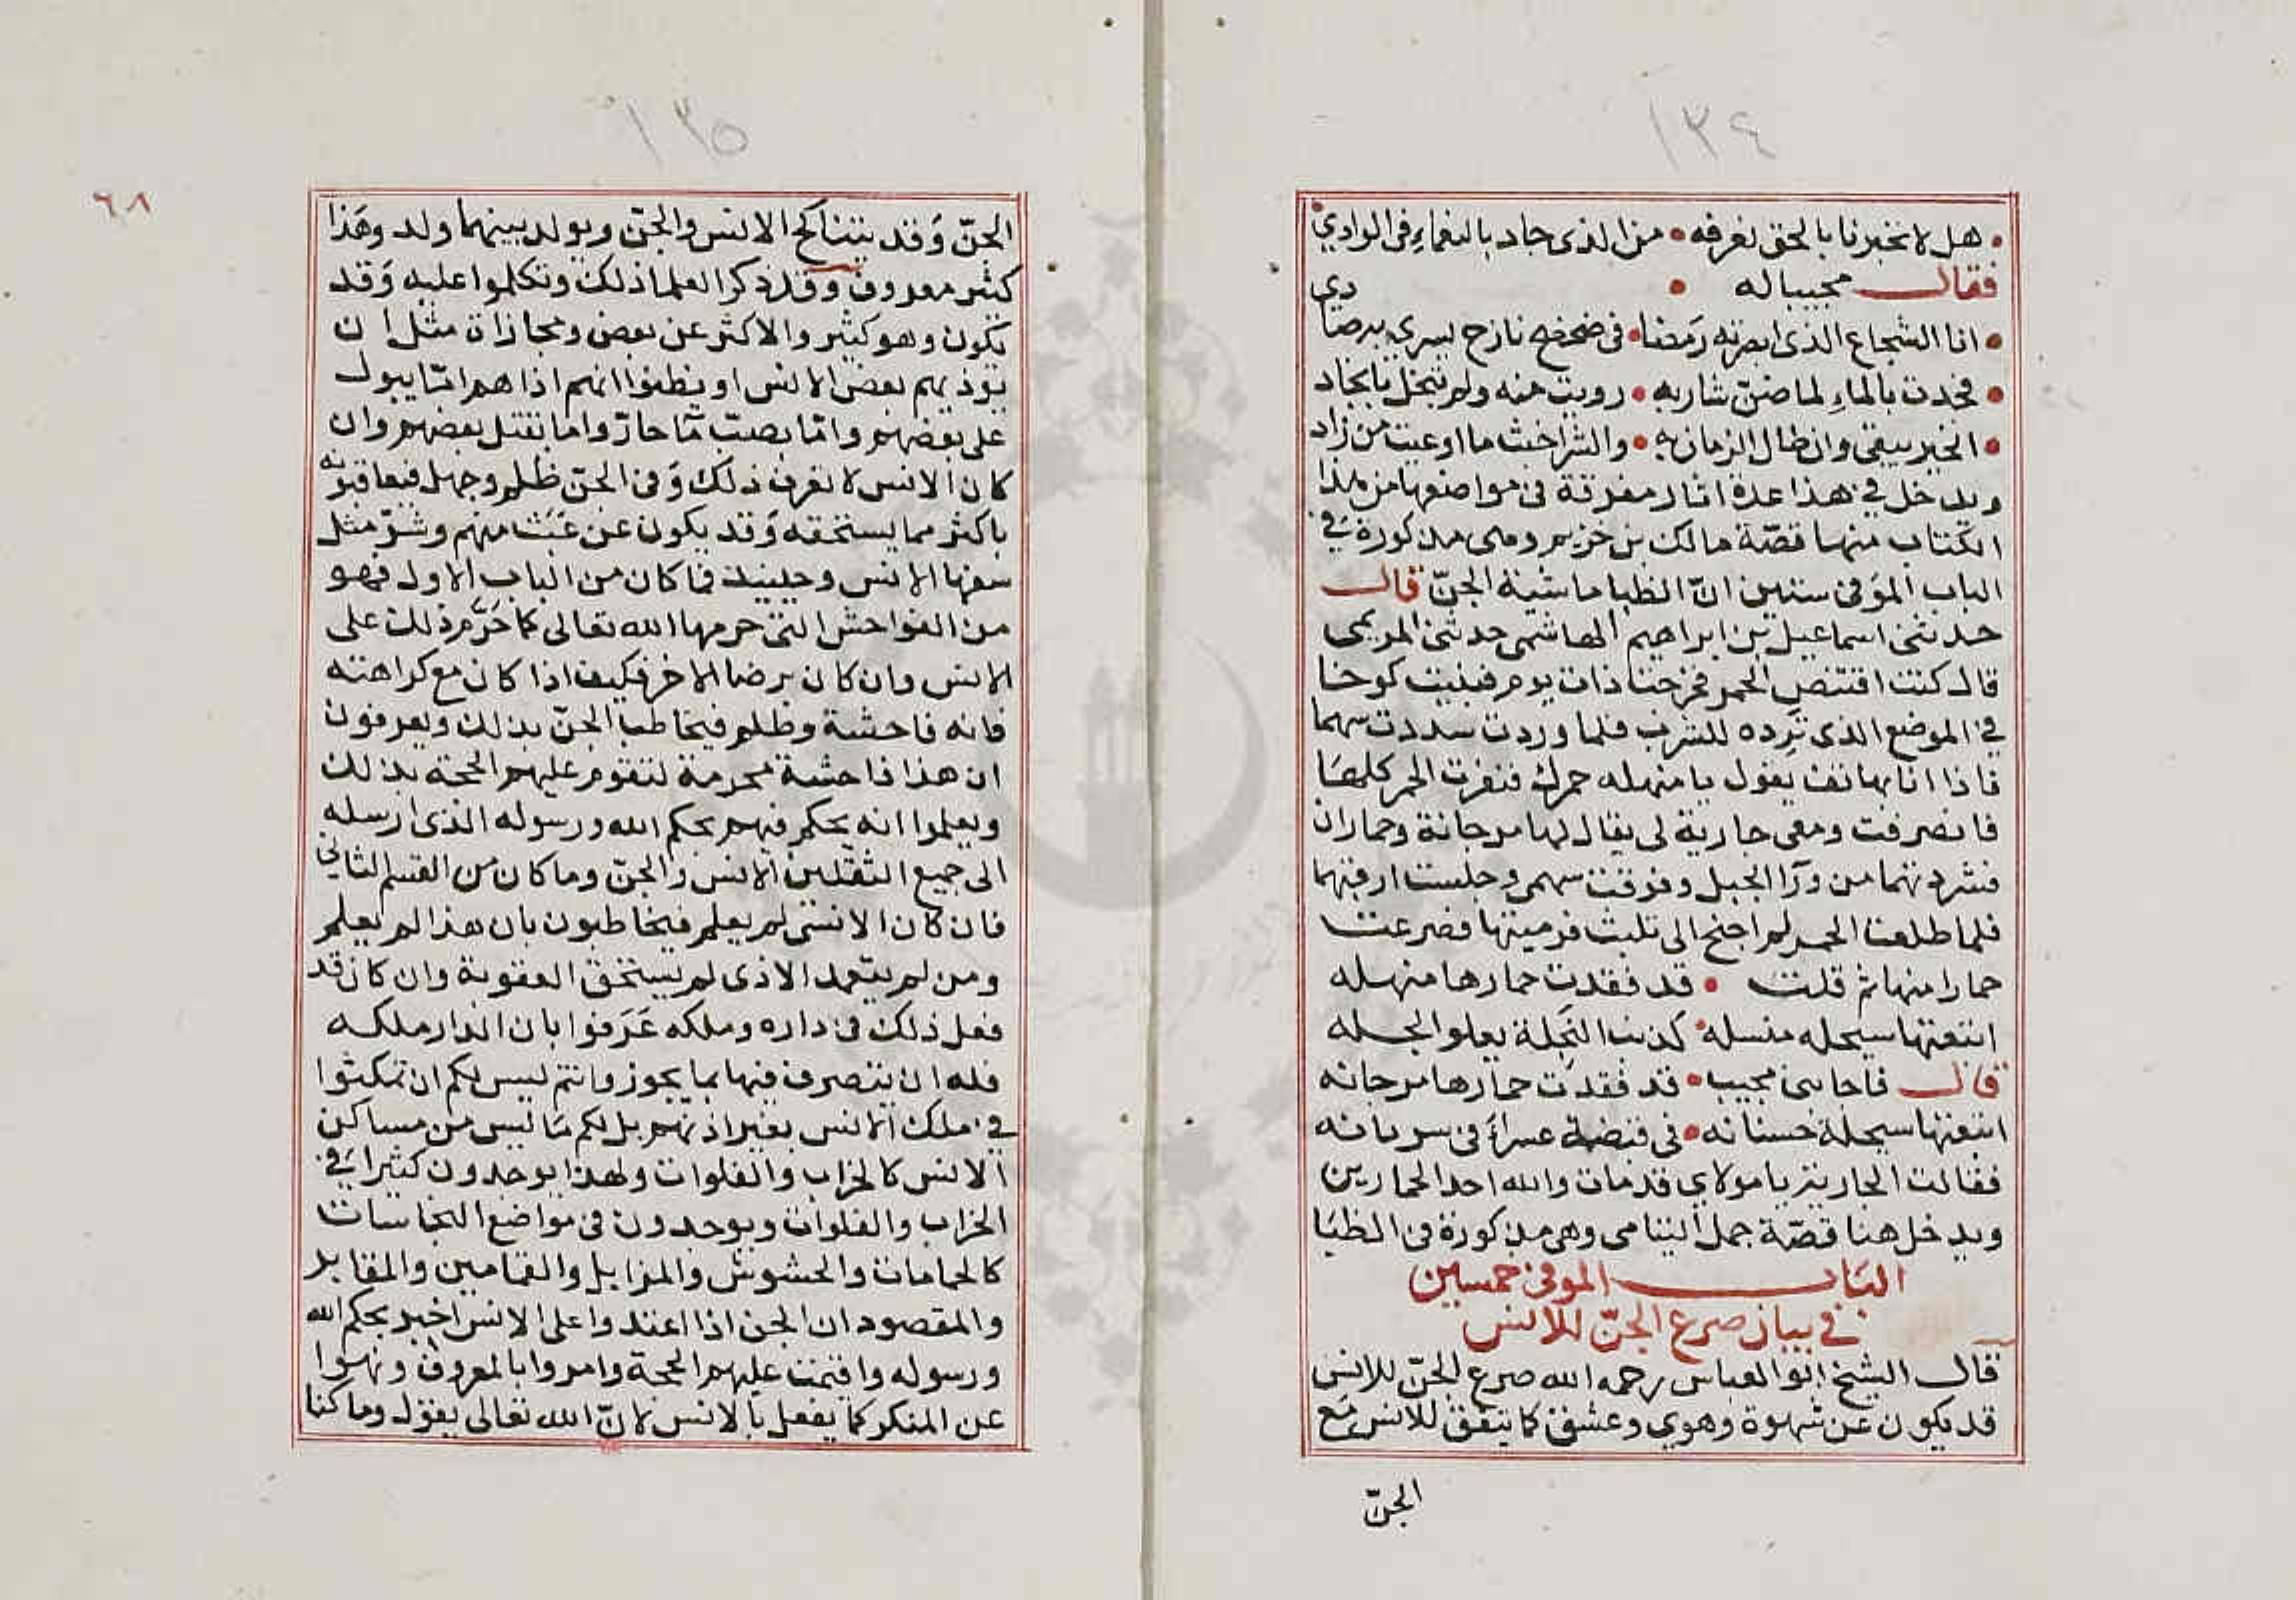 ١٣٤
• هل لا تخبرنا بالحق نعرفه • من الذى جاد بالنعماء فى الوادي
فقال مجيبا له • دي
• انا الشجاع الذى ابصرته رمضا • فى ضحضح نازح يسرى به صا
• فجدت بالماء لما ضن شاربه • رويت منه ولم تبخل بانجاد
• الخير يبقى وان طال الزمان به • والشر اخبث ما اوعيت من زاد
ويدخل فى هذا عدة اثار مفرقة فى مواضعها من هذا
الكتاب منها قصّة مالك بن خزيم وهى مذكورة فى
الباب الموفى ستين انّ الظبا ماشية الجنّ قال
حدثنى اسماعيل بن ابراهيم الهاشمى حدثنى المريمى
قال كنت اقتنص الحمر فخرجت ذات يوم فبنيت كوخا
فى الموضع الذى ترده للشرب فلما وردت سددت سهما
فاذا انا بهاتف يقول يا منهله حمرك فنفرت الحمر كلها
فانصرفت ومعى جارية لى يقال لها مرجانة وحماران
فشردتهما من ورآ الجبل وفوقت سهمى وجلست ارقبهما
فلما طلعت الحمر لم احتج الى تلبث فرميتها فصرعت
حمارا منها ثم قلت • قد فقدت حمارها منهله
اتبعتها سيحله منسله • كذنب النحلة يعلو الجله
قال فاجابنى مجيب • قد فقدت حمارها مرجانه
اتبعتها سيحلة حسنانه • فى قبضة عسراء فى سربانه
فقالت الجارية يا مولاي قد مات والله احد الحمارين
ويدخل هنا قصّة جمل اليتامى وهى مذكورة فى الظبا
الباب الموفى خمسين
فى بيان صرع الجنّ للانس
قال الشيخ ابو العباس رحمه الله صرع الجنّ للانس
قد يكون عن شهوة وهوي وعشق كما يتفق للانس مع
الجنّ
١٣٥
٦٨
الجنّ وقد يتناكح الانس والجنّ ويولد بينهما ولد وهذا
كثير معروف وقد ذكر العلما ذلك وتكلموا عليه وقد
يكون وهو كثير والاكثر عن بعض ومجازاة مثل ان
يوذيهم بعض الانس او يظنوا انهم اذا هم امّا يبول
على بعضهم وامّا بصبّ مّا حارّ واما بقتل بعضهم وان
كان الانس لا تعرف ذلك وفى الجنّ ظلم وجهل فيعاقبونه
باكثر مما يستحقه وقد يكون عن عبث منهم وشرّ مثل
سفها الانس وحينيذ فما كان من الباب الاول فهو
من الفواحش التى حرمها الله تعالى كما حرّم ذلك على
الانس وان كان برضا الاخر فكيف اذا كان مع كراهته
فانه فاحشة وظلم فيخاطب الجنّ بذلك ويعرفون
ان هذا فاحشة محرمة لتقوم عليهم الحجة بذلك
ويعلموا انه يحكم فيهم بحكم الله ورسوله الذى ارسله
الى جميع الثقلين الانس والجنّ وما كان من القسم الثانى
فان كان الانسى لم يعلم فيخاطبون بان هذا لم يعلم
ومن لم يتعمد الاذى لم يستحق العقوبة وان كان قد
فعل ذلك فى داره وملكه عرفوا بان الدار ملكه
فله ان يتصرف فيها بما يجوز وانتم ليس لكم ان تمكثوا
فى ملك الانس بغير اذنهم بل لكم ما ليس من مساكن
الانس كالخراب والفلوات ولهذا يوجدون كثيرا فى
الخراب والفلوات ويوجدون فى مواضع النجاسات
كالحمامات والحشوش والمزابل والقمامين والمقابر
والمقصود ان الجن اذا اعتدوا على الانس اخبر بحكم الله
ورسوله واقيمت عليهم الحجة وامروا بالمعروف ونهوا
عن المنكر كما يفعل بالانس لانّ الله تعالى يقول وما كنا